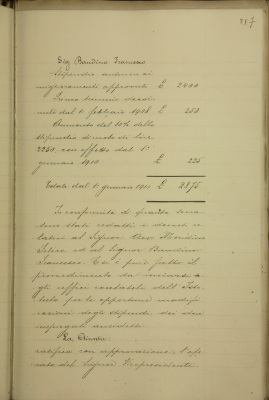 257
Sig. Bandino Francesco
Stipendio anteriore ai
miglioramenti approvati £ 2400
Primo biennio decor-
nuto dal 1° febbraio 1908 £ 250
Aumento del 10% dello
stipendio di nota di lire
2250, con effetto dal 1°
gennaio 1910 £ 225
Totale dal 1° gennaio 1910 £ 2875
In conformità di quanto
sono stati redatti i decreti re-
lativi al Signor Cav.
Felice ed al Signor Bandino
Francesco. Ed è poi fatto il
procedimento da inviarsi a-
gli uffici contabili dell'Isti-
tuto per le opportune modifi-
cazioni degli stipendi dei due
impiegati anzidetti.
La Giunta
ratifica con approvazione, l'ope-
rato del Signor Vicepresidente.